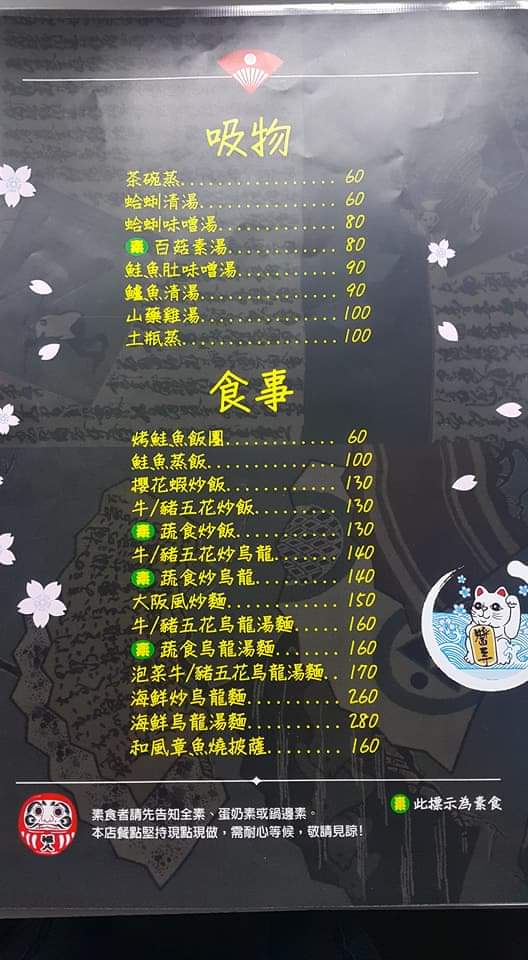 吸物
茶碗蒸................ 60
蛤蜊清湯.............. 60
蛤蜊味噌湯............ 80
素 百菇素湯........... 80
鮭魚肚味噌湯.......... 90
鱸魚清湯.............. 90
山藥雞湯.............. 100
土瓶蒸................ 100
食事
烤鮭魚飯團............ 60
鮭魚蒸飯.............. 100
櫻花蝦炒飯............ 130
牛/豬五花炒飯......... 130
素 蔬食炒飯........... 130
牛/豬五花炒烏龍....... 140
素 蔬食炒烏龍......... 140
大阪風炒麵............ 150
牛/豬五花烏龍湯麵..... 160
素 蔬食烏龍湯麵....... 160
泡菜牛/豬五花烏龍湯麵.. 170
海鮮炒烏龍麵.......... 260
海鮮烏龍湯麵.......... 280
和風章魚燒披薩........ 160
素 此標示為素食
素食者請先告知全素、蛋奶素或鍋邊素。
本店餐點堅持現點現做，需耐心等候，敬請見諒!